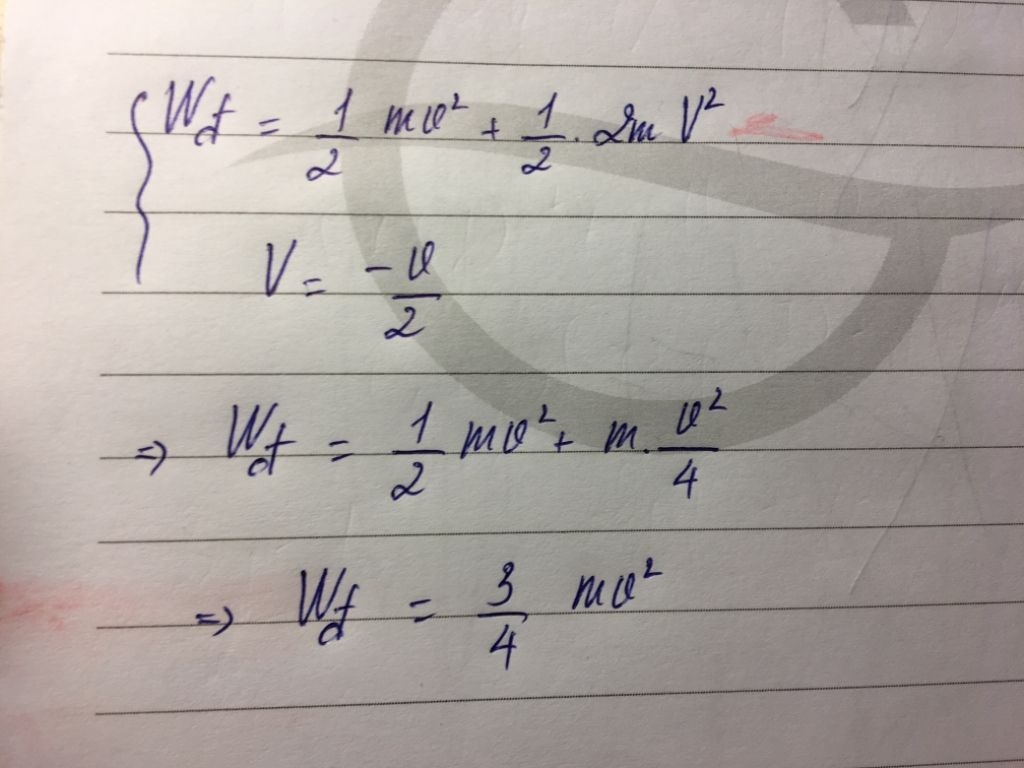 { Wđ = 1/2 mv² + 1/2 . 2m V²
V = -v/2
=> Wđ = 1/2 mv² + m. v²/4
=> Wđ = 3/4 mv²